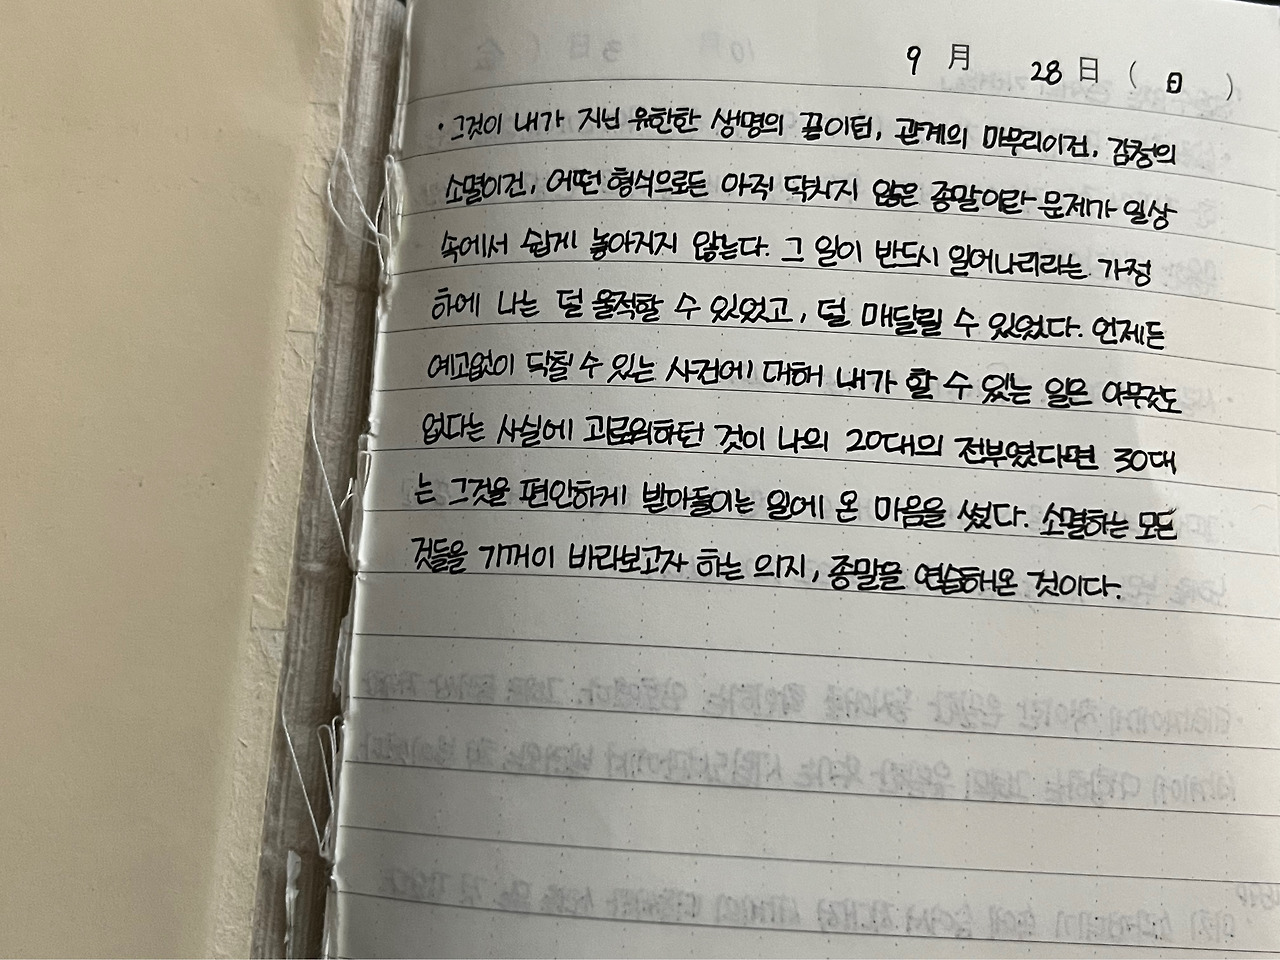 9 月 28 日 ( 日 )
· 그것이 내가 지닌 유한한 생명의 끝이던, 관계의 마무리이건, 감정의
소멸이건, 어떤 형식으로든 아직 닥치지 않은 종말이란 문제가 일상
속에서 쉽게 놓아지지 않는다. 그 일이 반드시 일어나리라는 가정
하에 나는 덜 울적할 수 있었고, 덜 매달릴 수 있었다. 언제든
예고없이 닥칠 수 있는 사건에 대해 내가 할 수 있는 일은 아무것도
없다는 사실에 괴로워하던 것이 나의 20대의 전부였다면 30대
는 그것을 편안하게 받아들이는 일에 온 마음을 썼다. 소멸하는 모든
것들을 기꺼이 바라보고자 하는 의지, 종말을 연습해온 것이다.